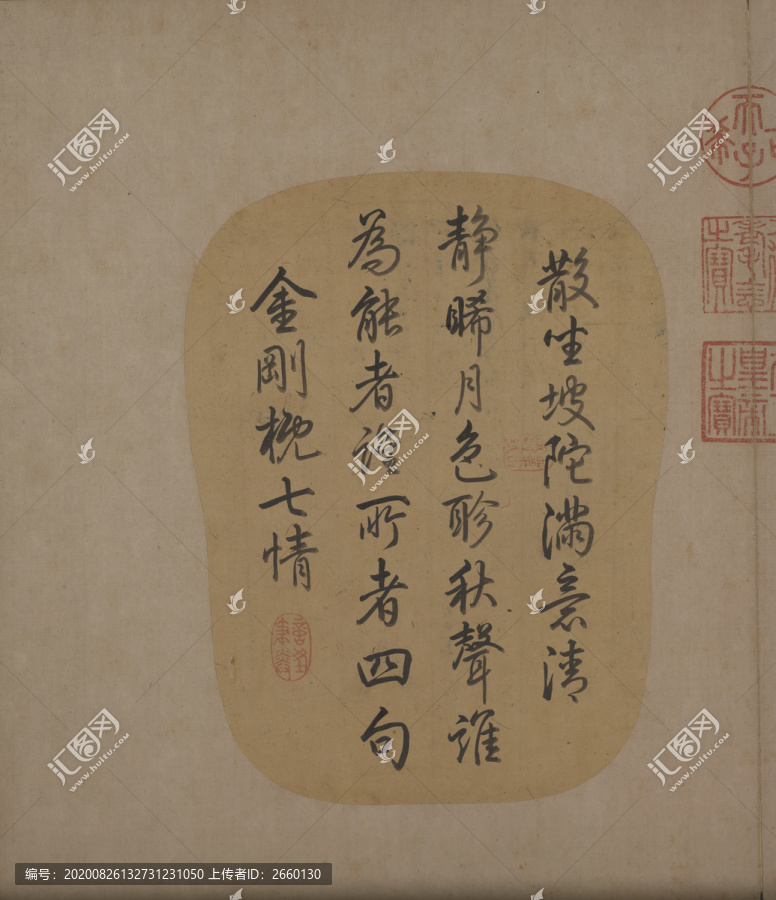 散坐坡陀满意清
静睎月色聆秋聲誰
為能者誰所者四句
金剛概七情
汇图网
www.huitu.com
编号：20200826132731231050 上传者ID：2660130